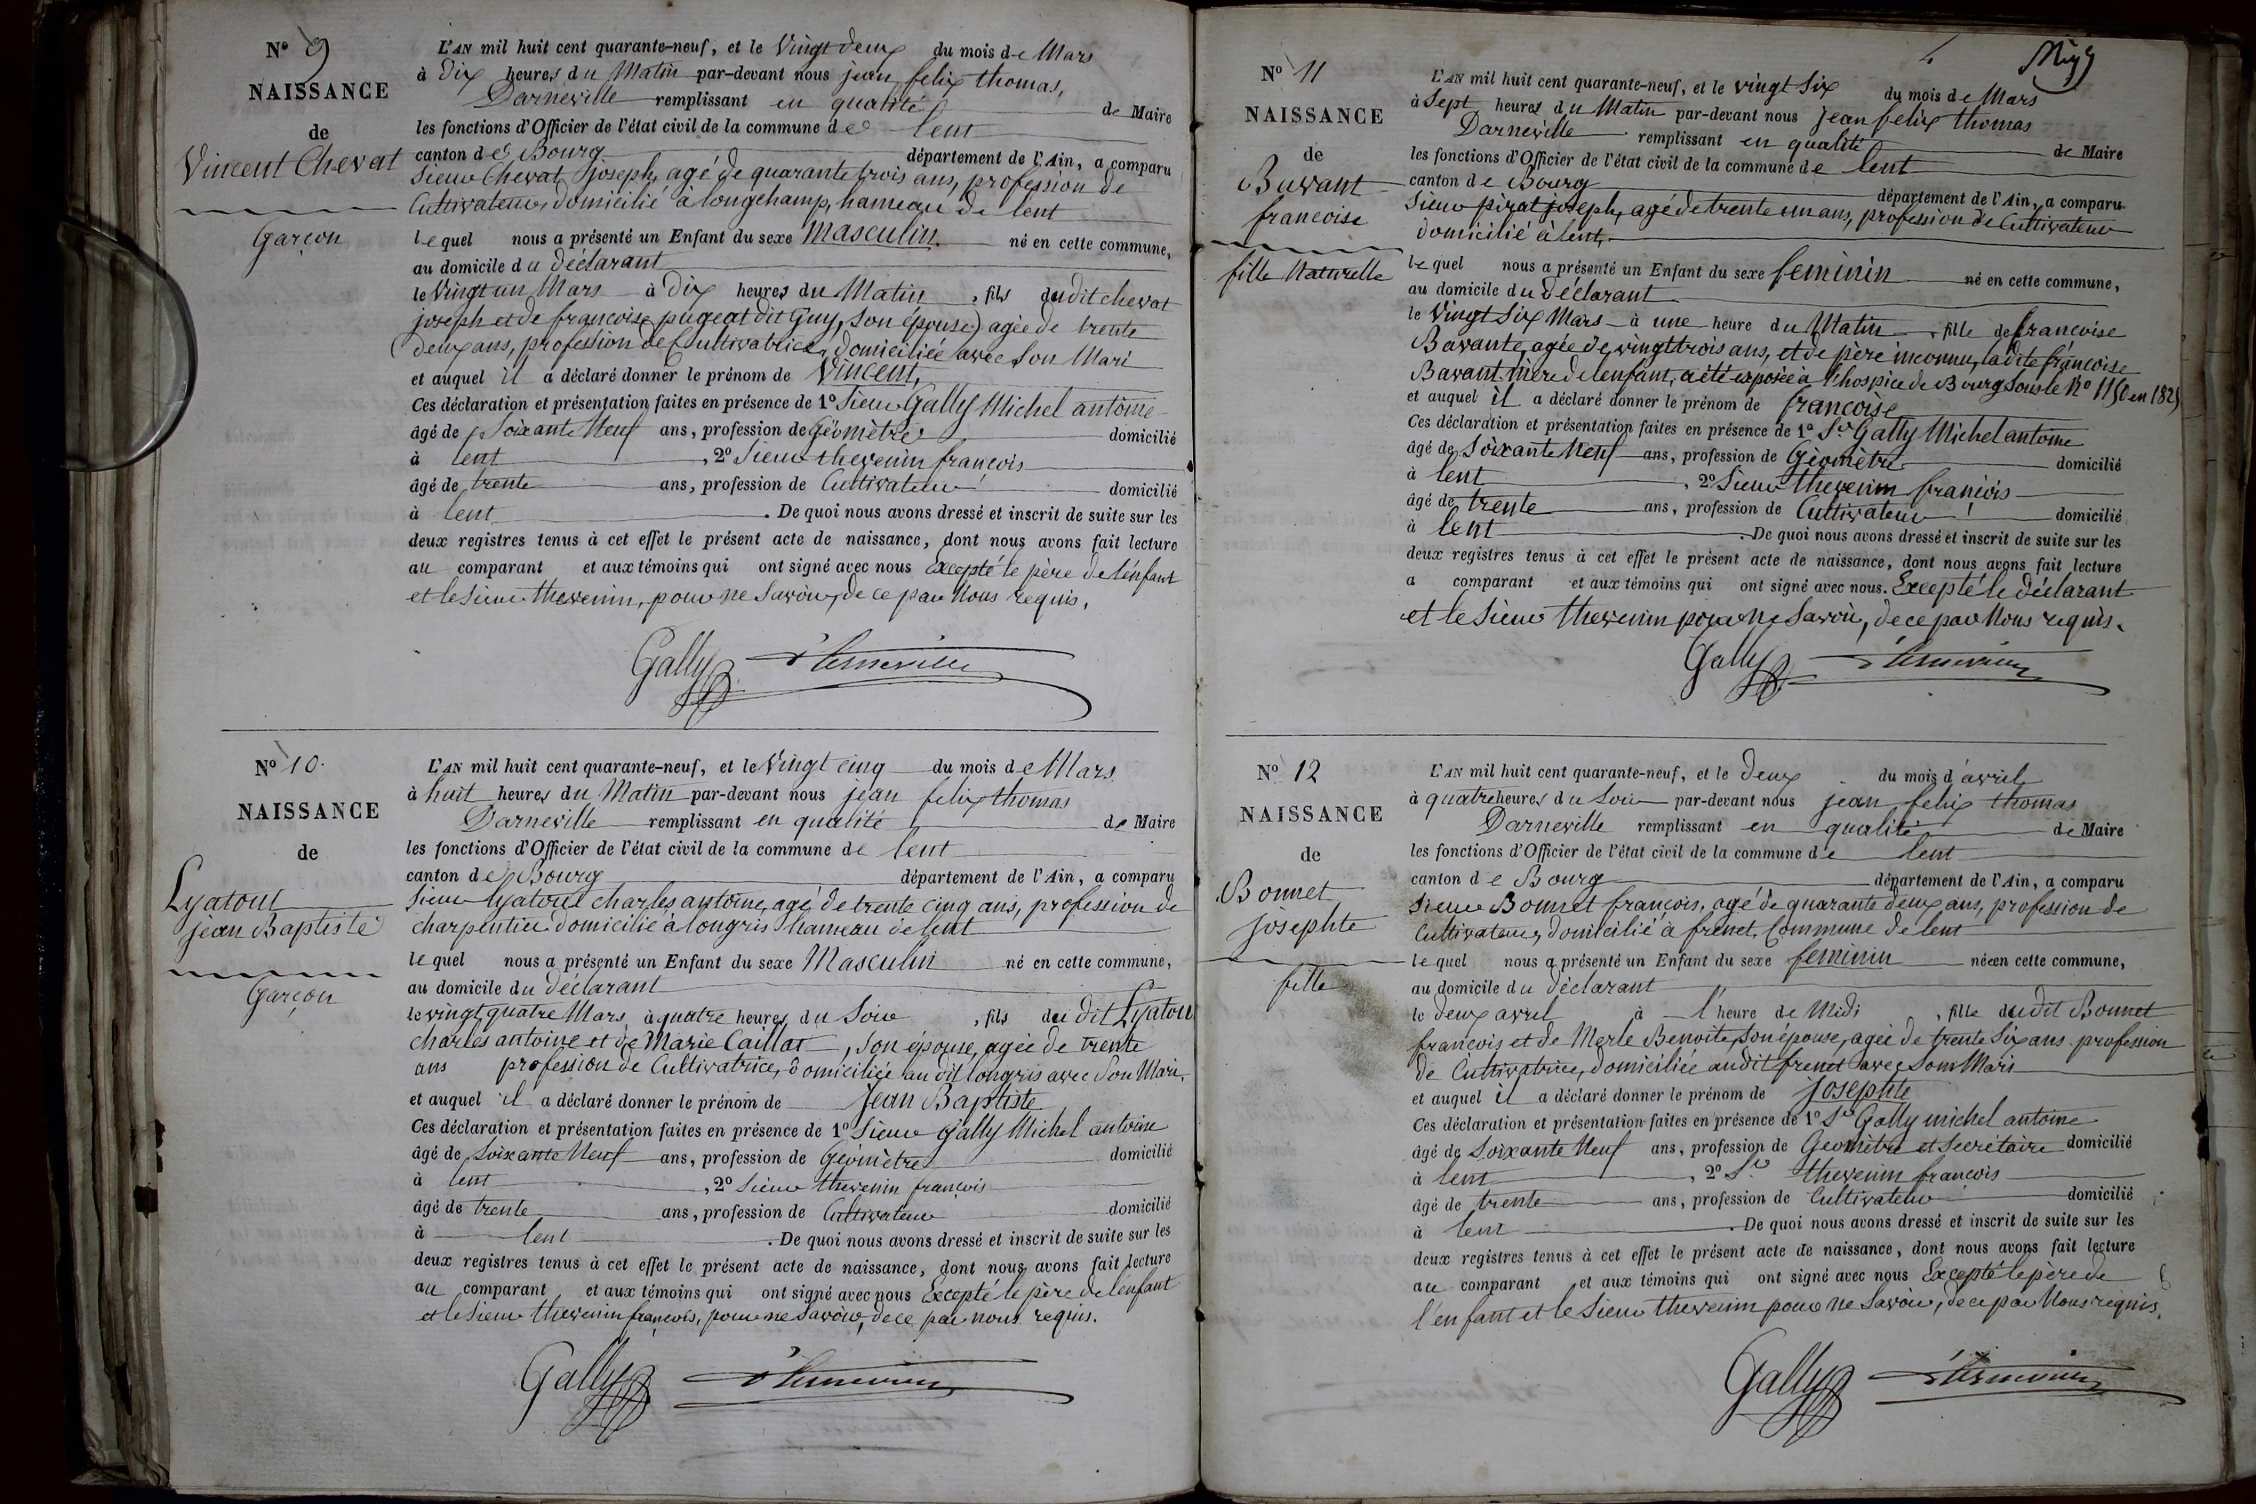 N° 9
NAISSANCE
de
Vincent Chevat
Garçon
L'AN mil huit cent quarante-neuf, et le Vingt deux du mois de Mars
à Dix heures du Matin par-devant nous jean felix thomas,
Darneville remplissant en qualité de Maire
les fonctions d'Officier de l'état civil de la commune de lent
canton de Bourg département de l'Ain, a comparu
Sieur Chevat joseph, agé de quarante trois ans, profession de
Cultivateur, domicilié à longchamp, hameau de lent
lequel nous a présenté un Enfant du sexe Masculin né en cette commune,
au domicile du déclarant
le Vingt un Mars à Dix heures du Matin, fils dudit chevat
joseph et de françoise pugeat dit Guy, son épouse) agée de trente
(deux ans, profession de Cultivatrice, domiciliée avec son Mari
et auquel il a déclaré donner le prénom de Vincent,
Ces déclaration et présentation faites en présence de 1° Sieur Gally Michel antoine
âgé de Soixante Neuf ans, profession de Géomètre domicilié
à lent, 2° Sieur thevenin françois
âgé de trente ans, profession de Cultivateur domicilié
à lent. De quoi nous avons dressé et inscrit de suite sur les
deux registres tenus à cet effet le présent acte de naissance, dont nous avons fait lecture
au comparant et aux témoins qui ont signé avec nous Excepté le père de l'enfant
et le Sieur thevenin, pour ne Savoir, de ce par Nous requis.
Gally
N° 10.
NAISSANCE
de
Lyatout
jean Baptiste
Garçon
L'AN mil huit cent quarante-neuf, et le Vingt cinq du mois de Mars
à huit heures du Matin par-devant nous jean felix thomas
Darneville remplissant en qualité de Maire
les fonctions d'Officier de l'état civil de la commune de lent
canton de Bourg département de l'Ain, a comparu
Sieur Lyatout charles antoine, agé de trente cinq ans, profession de
charpentier domicilié à longris hameau de lent
lequel nous a présenté un Enfant du sexe Masculin né en cette commune,
au domicile du déclarant
le vingt quatre Mars à quatre heures du Soir, fils du dit Lyatout
charles antoine et de Marie Caillat, Son épouse, agée de trente
ans profession de Cultivatrice, domiciliée au dit longris avec Son Mari,
et auquel il a déclaré donner le prénom de jean Baptiste
Ces déclaration et présentation faites en présence de 1° Sieur Gally Michel antoine
âgé de Soixante Neuf ans, profession de Géomètre domicilié
à lent, 2° Sieur thevenin françois
âgé de trente ans, profession de Cultivateur domicilié
à lent. De quoi nous avons dressé et inscrit de suite sur les
deux registres tenus à cet effet le présent acte de naissance, dont nous avons fait lecture
au comparant et aux témoins qui ont signé avec nous Excepté le père de l'enfant
et le Sieur thevenin françois, pour ne Savoir, de ce par nous requis.
Gally
N° 11
NAISSANCE
de
Bavant
francoise
fille Naturelle
L'AN mil huit cent quarante-neuf, et le vingt Six du mois de Mars
à Sept heures du Matin par-devant nous jean felix thomas
Darneville remplissant en qualité de Maire
les fonctions d'Officier de l'état civil de la commune de lent
canton de Bourg département de l'Ain, a comparu
Sieur pirat joseph, agé de trente un ans, profession de Cultivateur
domicilié à lent,
lequel nous a présenté un Enfant du sexe feminin né en cette commune,
au domicile du déclarant
le Vingt Six Mars à une heure du Matin, fille de francoise
Bavante, agée de vingt trois ans, et de père inconnu, ladite francoise
Bavant, mère de l'enfant, a été exposée à l'hospice de Bourg Sous le N°
et auquel il a déclaré donner le prénom de francoise
Ces déclaration et présentation faites en présence de 1° Sr Gally Michel antoine
âgé de Soixante Neuf ans, profession de Géomètre domicilié
à lent, 2° Sieur thevenin francois
âgé de trente ans, profession de Cultivateur domicilié
à lent. De quoi nous avons dressé et inscrit de suite sur les
deux registres tenus à cet effet le présent acte de naissance, dont nous avons fait lecture
a comparant et aux témoins qui ont signé avec nous. Excepté le déclarant
et le Sieur thevenin pour ne Savoir, de ce par Nous requis.
Gally
N° 12
NAISSANCE
de
Bonnet
josephte
fille
L'AN mil huit cent quarante-neuf, et le deux du mois d'avril
à quatre heures du Soir par-devant nous jean felix thomas
Darneville remplissant en qualité de Maire
les fonctions d'Officier de l'état civil de la commune de lent
canton de Bourg département de l'Ain, a comparu
Sieur Bonnet francois, agé de quarante deux ans, profession de
Cultivateur, domicilié à frenet, Commune de lent
lequel nous a présenté un Enfant du sexe feminin née en cette commune,
au domicile du déclarant
le deux avril à l'heure de Midi, fille dudit Bonnet
francois et de Merle Benoite, Son épouse, agée de trente Six ans profession
de Cultivatrice, domiciliée audit frenet avec Son Mari
et auquel il a déclaré donner le prénom de josephte
Ces déclaration et présentation faites en présence de 1° Sr Gally michel antoine
âgé de Soixante Neuf ans, profession de Géomètre et Secrétaire domicilié
à lent, 2° Sr thevenin francois
âgé de trente ans, profession de Cultivateur domicilié
à lent. De quoi nous avons dressé et inscrit de suite sur les
deux registres tenus à cet effet le présent acte de naissance, dont nous avons fait lecture
au comparant et aux témoins qui ont signé avec nous Excepté le père de
l'enfant et le Sieur thevenin pour ne Savoir, de ce par Nous requis.
Gally